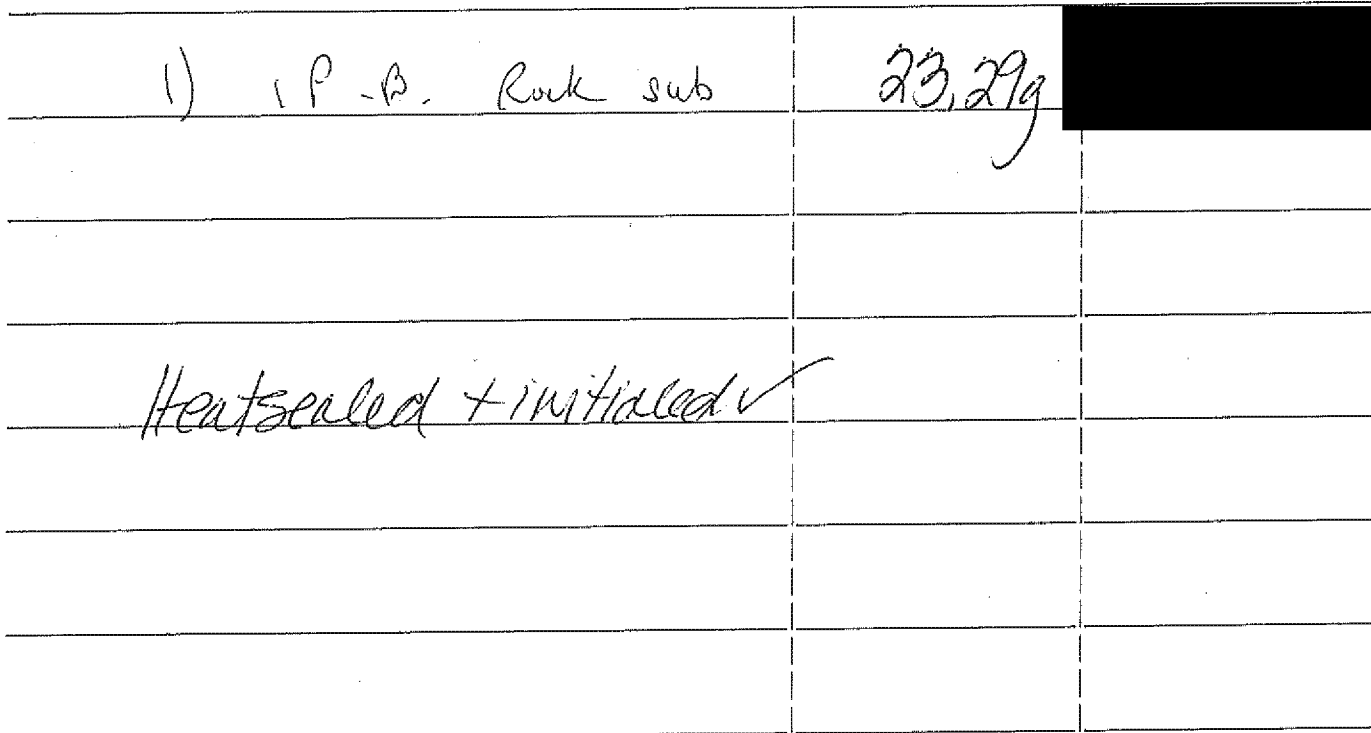 1) 1 P.B. Rock sub 23.29g
Heatsealed + initialed ✓